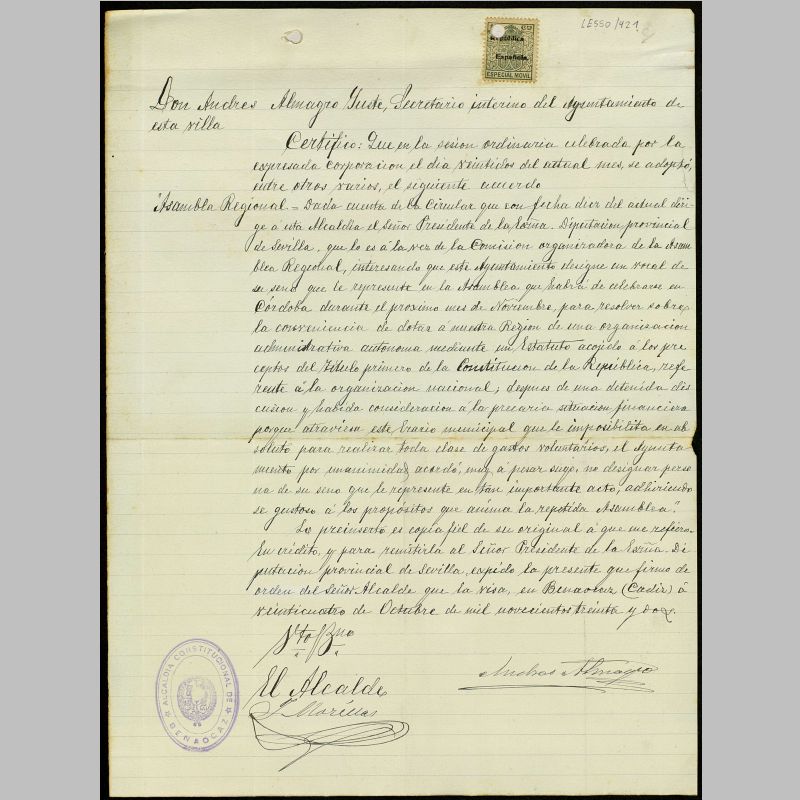 LESSO/421
República
Española
ESPECIAL MOVIL
Don Andres Almagro Yuste, Secretario interino del Ayuntamiento de
esta villa
Certifico: Que en la sesion ordinaria celebrada por la
expresada corporacion el dia veintidos del actual mes, se adoptó,
entre otros varios, el siguiente acuerdo
"Asamblea Regional = Dada cuenta de la Circular que con fecha diez del actual diri-
ge á esta Alcaldia el Señor Presidente de la Exma. Diputacion provincial
de Sevilla, que lo es á la vez de la Comision organizadora de la Asam
blea Regional, interesando que este Ayuntamiento designe un vocal de
su seno que le represente en la Asamblea que habrá de celebrarse en
Córdoba durante el proximo mes de Noviembre, para resolver sobre
la conveniencia de dotar á nuestra Region de una organizacion
administrativa autonoma mediante un Estatuto acojido á los pre
ceptos del Título primero de la Constitucion de la República, refe
rente á la organizacion nacional; despues de una detenida dis
cusion y habida consideracion a la precaria situacion financiera
porque atraviesa este Erario municipal que le imposibilita en ab
soluto para realizar toda clase de gastos voluntarios, el Ayunta
miento por unanimidad acordó, muy á pesar suyo, no designar perso
na de su seno que le represente en tan importante acto, adhiriendo
se gustoso á los propósitos que anima la repetida Asamblea".
Lo preinserto es copia fiel de su original á que me refiero.
En crédito, y para remitirla al Señor Presidente de la Exma. Di
putacion provincial de Sevilla, expido la presente que firmo de
orden del Señor Alcalde que la visa, en Benaocaz (Cadiz) á
veinticuatro de Octubre de mil novecientos treinta y dos.
Vto Bno
El Alcalde
Andres Almagro
ALCALDIA CONSTITUCIONAL DE
BENAOCAZ